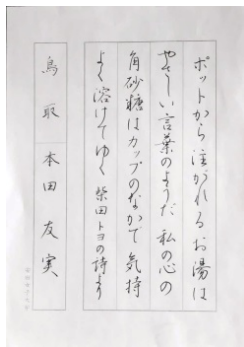 ポットから注がれるお湯は
やさしい言葉のようだ 私の心の
角砂糖はカップのなかで 気持
よく溶けてゆく 柴田トヨの詩より
鳥取 本田友実